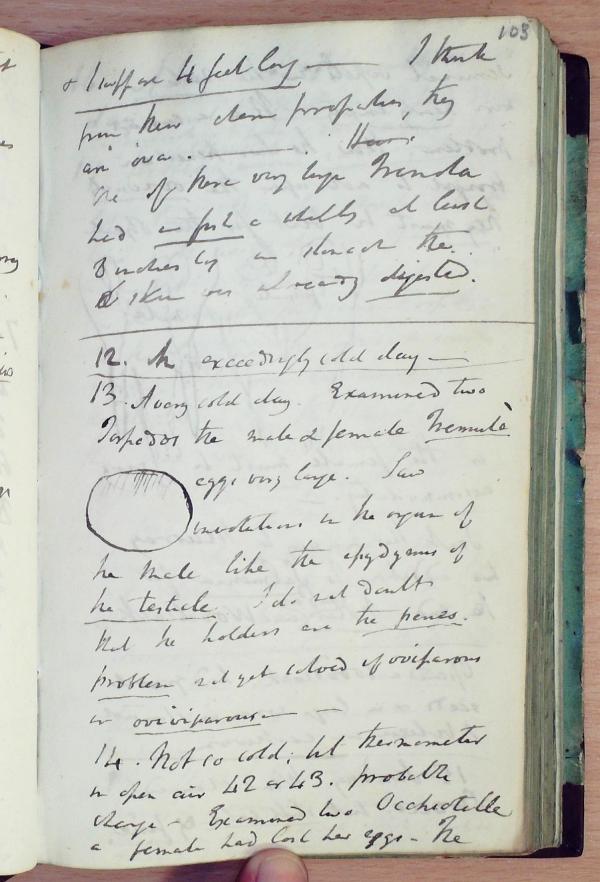 103
& I suppose 4 feet long — I think
from their clear properties, they
are ova. —
One of these very large Tremola
had a fish a whole at least
8 inches long in stomach the
skin was already digested.
12. An exceedingly cold day —
13. A very cold day. Examined two
Torpedos the male & female Tremule
eggs very large. Saw
involutions in the organ of
the male like the epydymus of
the testicle. I do not doubt
that the holders are the penes.
problem not yet solved if oviparous
or oviviparous —
14. Not so cold; but thermometer
in open air 42 or 43. probable
change — Examined two Occhiatelle
a female had lost her eggs — The